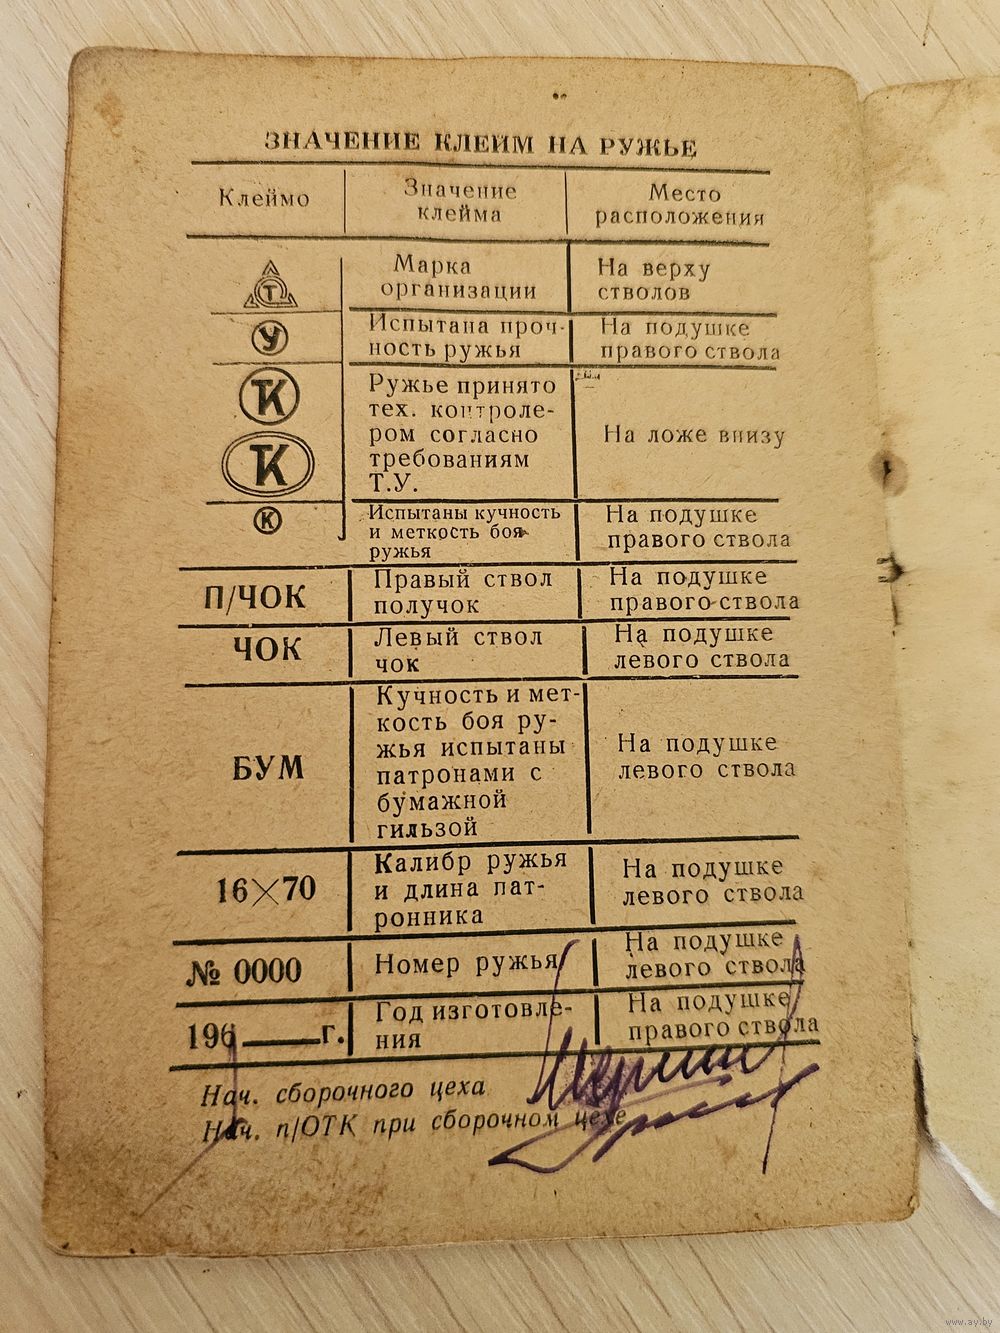 ЗНАЧЕНИЕ КЛЕЙМ НА РУЖЬЕ
Клеймо
Значение
клейма
Место
расположения
Т
Марка
организации
На верху
стволов
У
Испытана проч-
ность ружья
На подушке
правого ствола
ТК
ТК
Ружье принято
тех. контроле-
ром согласно
требованиям
Т.У.
На ложе внизу
К
Испытаны кучность
и меткость боя
ружья
На подушке
правого ствола
П/ЧОК
Правый ствол
получок
На подушке
правого ствола
ЧОК
Левый ствол
чок
На подушке
левого ствола
БУМ
Кучность и мет-
кость боя ру-
жья испытаны
патронами с
бумажной
гильзой
На подушке
левого ствола
16×70
Калибр ружья
и длина пат-
ронника
На подушке
левого ствола
№ 0000
Номер ружья
На подушке
левого ствола
196 г.
Год изготовле-
ния
На подушке
правого ствола
Нач. сборочного цеха
Нач. п/ОТК при сборочном цехе
www.ay.by